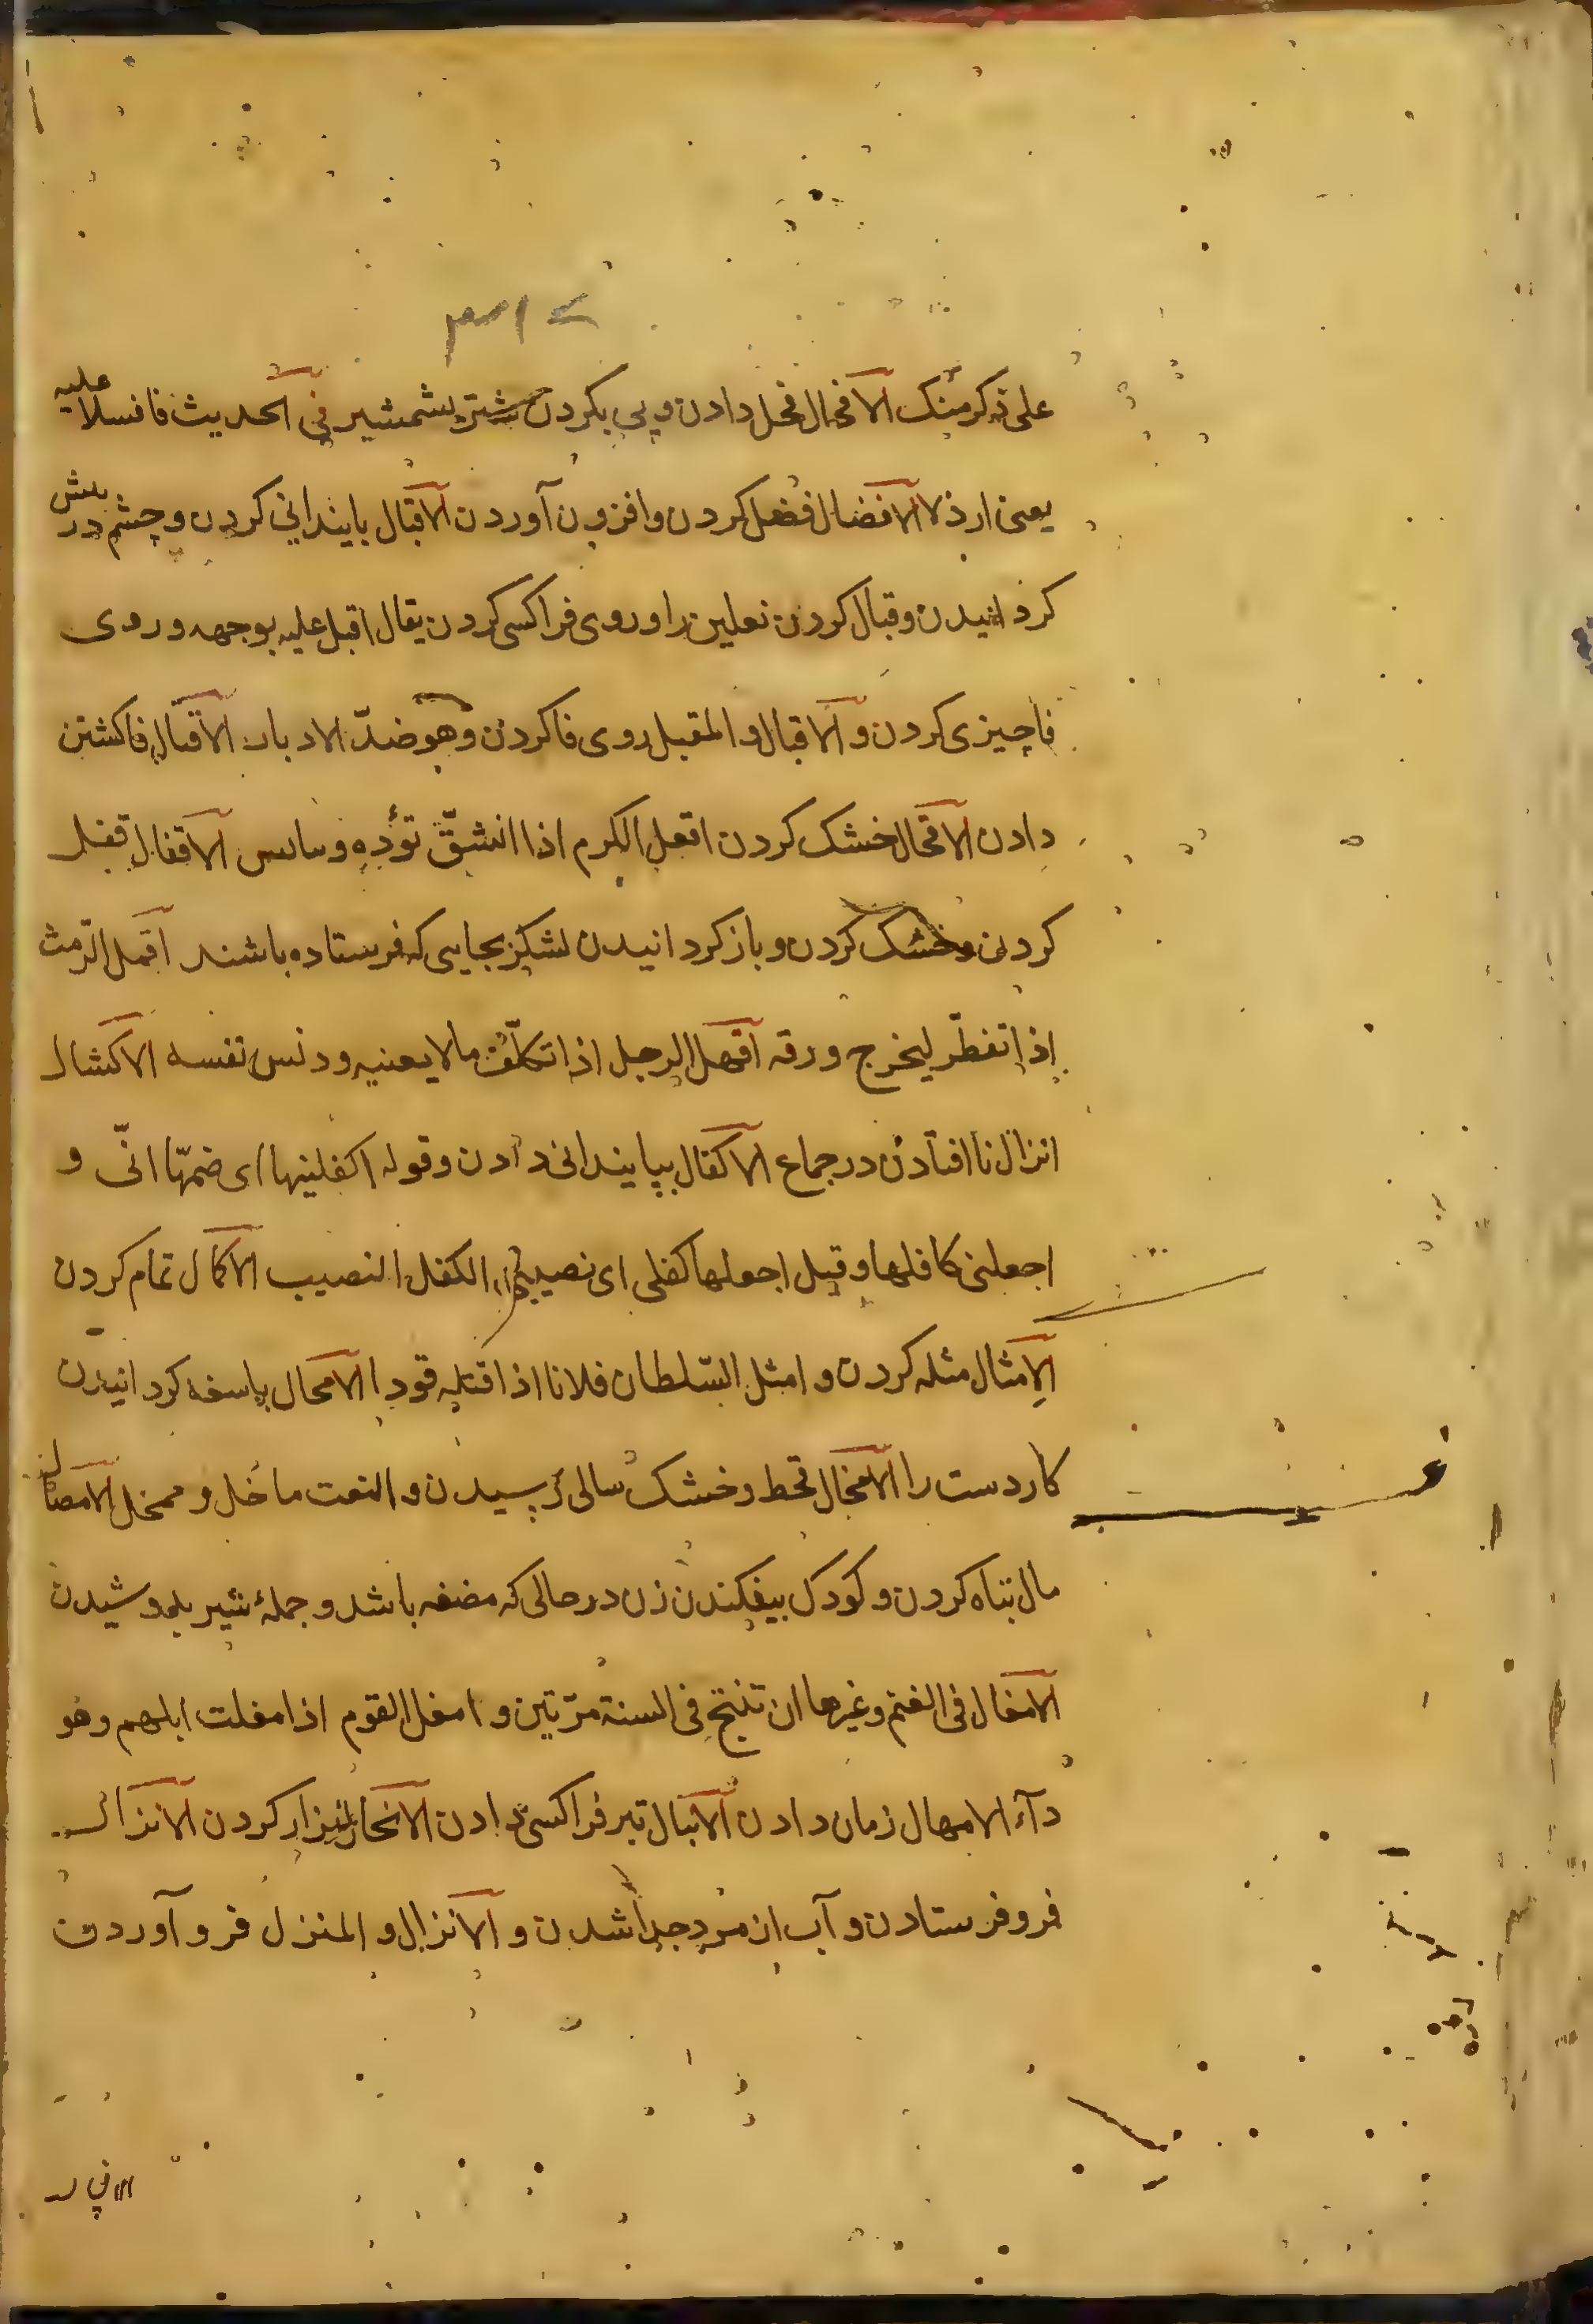 علی ذکر منک الافحال فحل دادن و پی بکردن شتر بشمشیر فی الحدیث فافسلا علیه
یعنی ارذلا الافضال فضل کردن و افزون آوردن الاقبال پایندانی کردن و چشم در پیش
کردانیدن و قبال کردن نعلین را و روی فرا کسی کردن یقال اقبل علیه بوجهه و روی
فا چیزی کردن و الاقبال و المقبل روی فا کردن و هو ضدّ الادبار الاقتال فا کشتن
دادن الاقحال خشک کردن اقعل الکرم اذا انشقّ الاقفال قفل
کردن و خشک کردن و باز کردانیدن لشکر بجایی که فرستاده باشند اقمل الرّمث
اذا تفطّر لیخرج ورقه اقهل الرجل اذا تکلّف ما لا یعنیه و دنس نفسه الاکسال
انزال نا افتادن در جماع الاکفال بپایندانی دادن و قوله اکفلنیها ای ضمّها الیّ و
اجعلنی کافلها و قیل اجعلها کفلی ای نصیبی الکفل النصیب الاکمال تمام کردن
الامثال مثله کردن و امثل السّلطان فلانا اذا قتله قودا الامحال باسغه کردانیدن
کار دست را الامحال قحط و خشک سالی رسیدن و النعت ماحل و ممحل الامصال
مال تباه کردن و کودک بیفکندن زن در حالی که مضغه باشد و جملهٔ شیر بدوشیدن
الامغال فی الغنم و غیرها ان تنتج فی السنة مرّتین و امغل القوم اذا مغلت ابلهم و هو
داء الامهال زمان دادن الانبال تیر فرا کسی دادن الانحال نزار کردن الانزال
فرو فرستادن و آب از مرد جدا شدن و الانزال و المنزل فرو آوردن